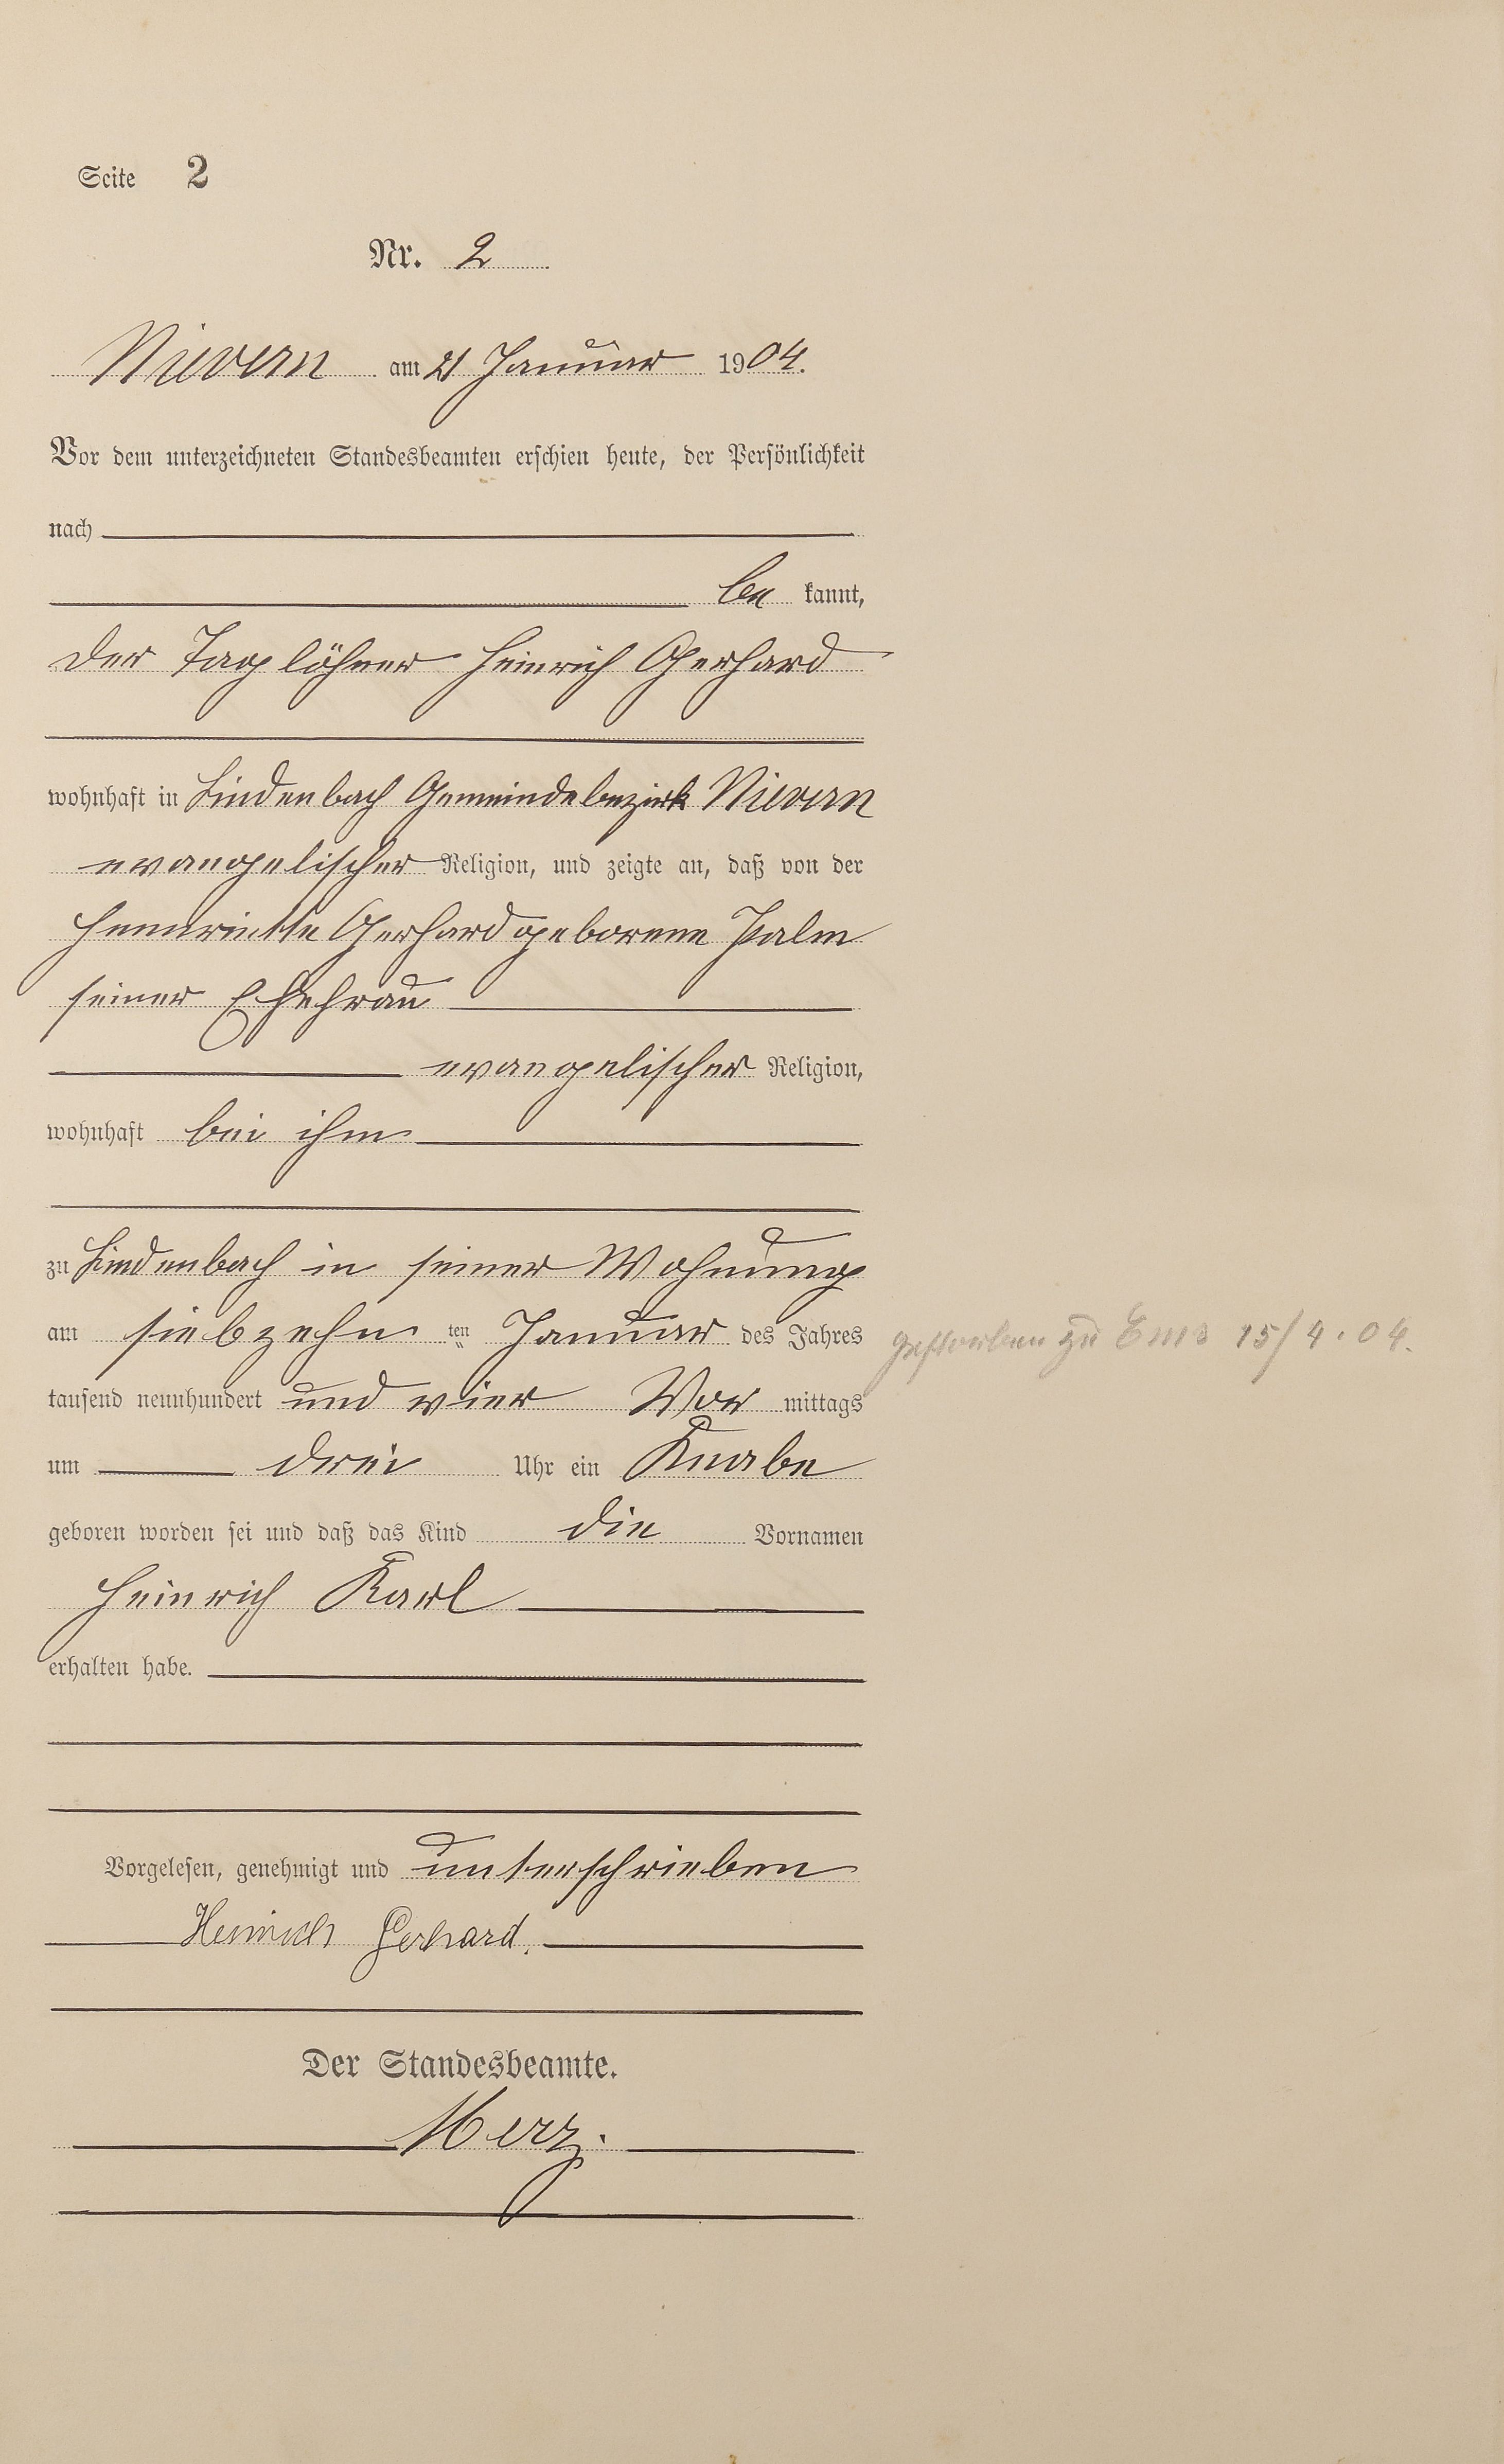 Seite 2
Nr. 2
Nievern am 21 Januar 1904.
Vor dem unterzeichneten Standesbeamten erschien heute, der Persönlichkeit
nach
be kannt,
der Taglöhner Heinrich Gerhard
wohnhaft in Lindenbach Gemeindebezirk Nievern
evangelischer Religion, und zeigte an, daß von der
Hennriette Gerhard geborene Palm
seiner Ehefrau
evangelischer Religion,
wohnhaft bei ihm
zu Lindenbach in seiner Wohnung
am siebzehn ten Januar des Jahres
gestorben zu Ems 15/4.04.
tausend neunhundert und vier Vor mittags
um drei Uhr ein Knabe
geboren worden sei und daß das Kind die Vornamen
Heinrich Karl
erhalten habe.
Vorgelesen, genehmigt und unterschrieben
Heinrich Gerhard.
Der Standesbeamte.
Merz.